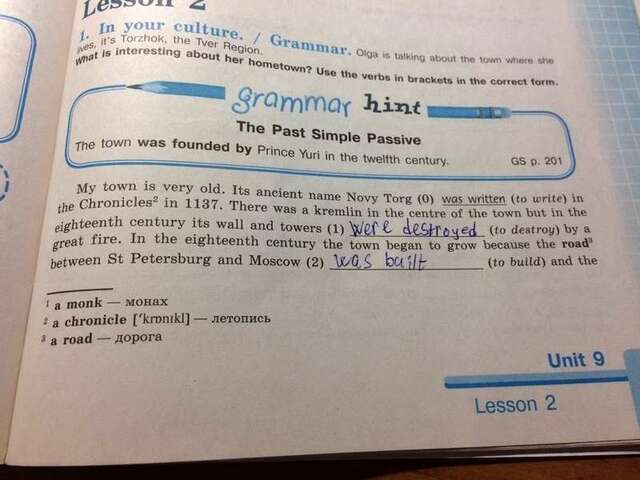 Lesson 2
1. In your culture. / Grammar. Olga is talking about the town where she
lives, it's Torzhok, the Tver Region.
What is interesting about her hometown? Use the verbs in brackets in the correct form.
grammar hint
The Past Simple Passive
The town was founded by Prince Yuri in the twelfth century. GS p. 201
My town is very old. Its ancient name Novy Torg (0) was written (to write) in
the Chronicles² in 1137. There was a kremlin in the centre of the town but in the
eighteenth century its wall and towers (1) were destroyed (to destroy) by a
great fire. In the eighteenth century the town began to grow because the road³
between St Petersburg and Moscow (2) was built (to build) and the
¹ a monk — монах
² a chronicle ['krɒnɪkl] — летопись
³ a road — дорога
Unit 9
Lesson 2